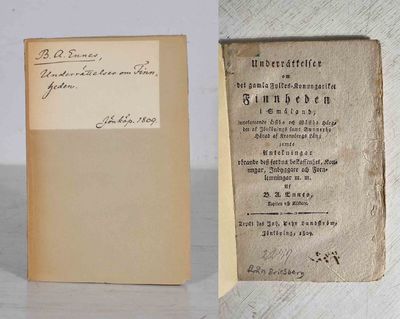 B. A. Ennes,
Underrättelser om Finn-
heden.
Jönköp. 1809.
Underrättelser
om
det gamla Fylkes-Konungariket
Finnheden
i Småland,
innefattande Östbo och Wästbo Härad
af Jönköpings samt Sunnerbo
Härad af Kronobergs Län;
jemte
Anteckningar
rörande deß fordna beskaffenhet, Kon-
ungar, Inbyggare och Forn-
lemningar m. m.
af
B. A. Ennes,
Jönköping, 1809.